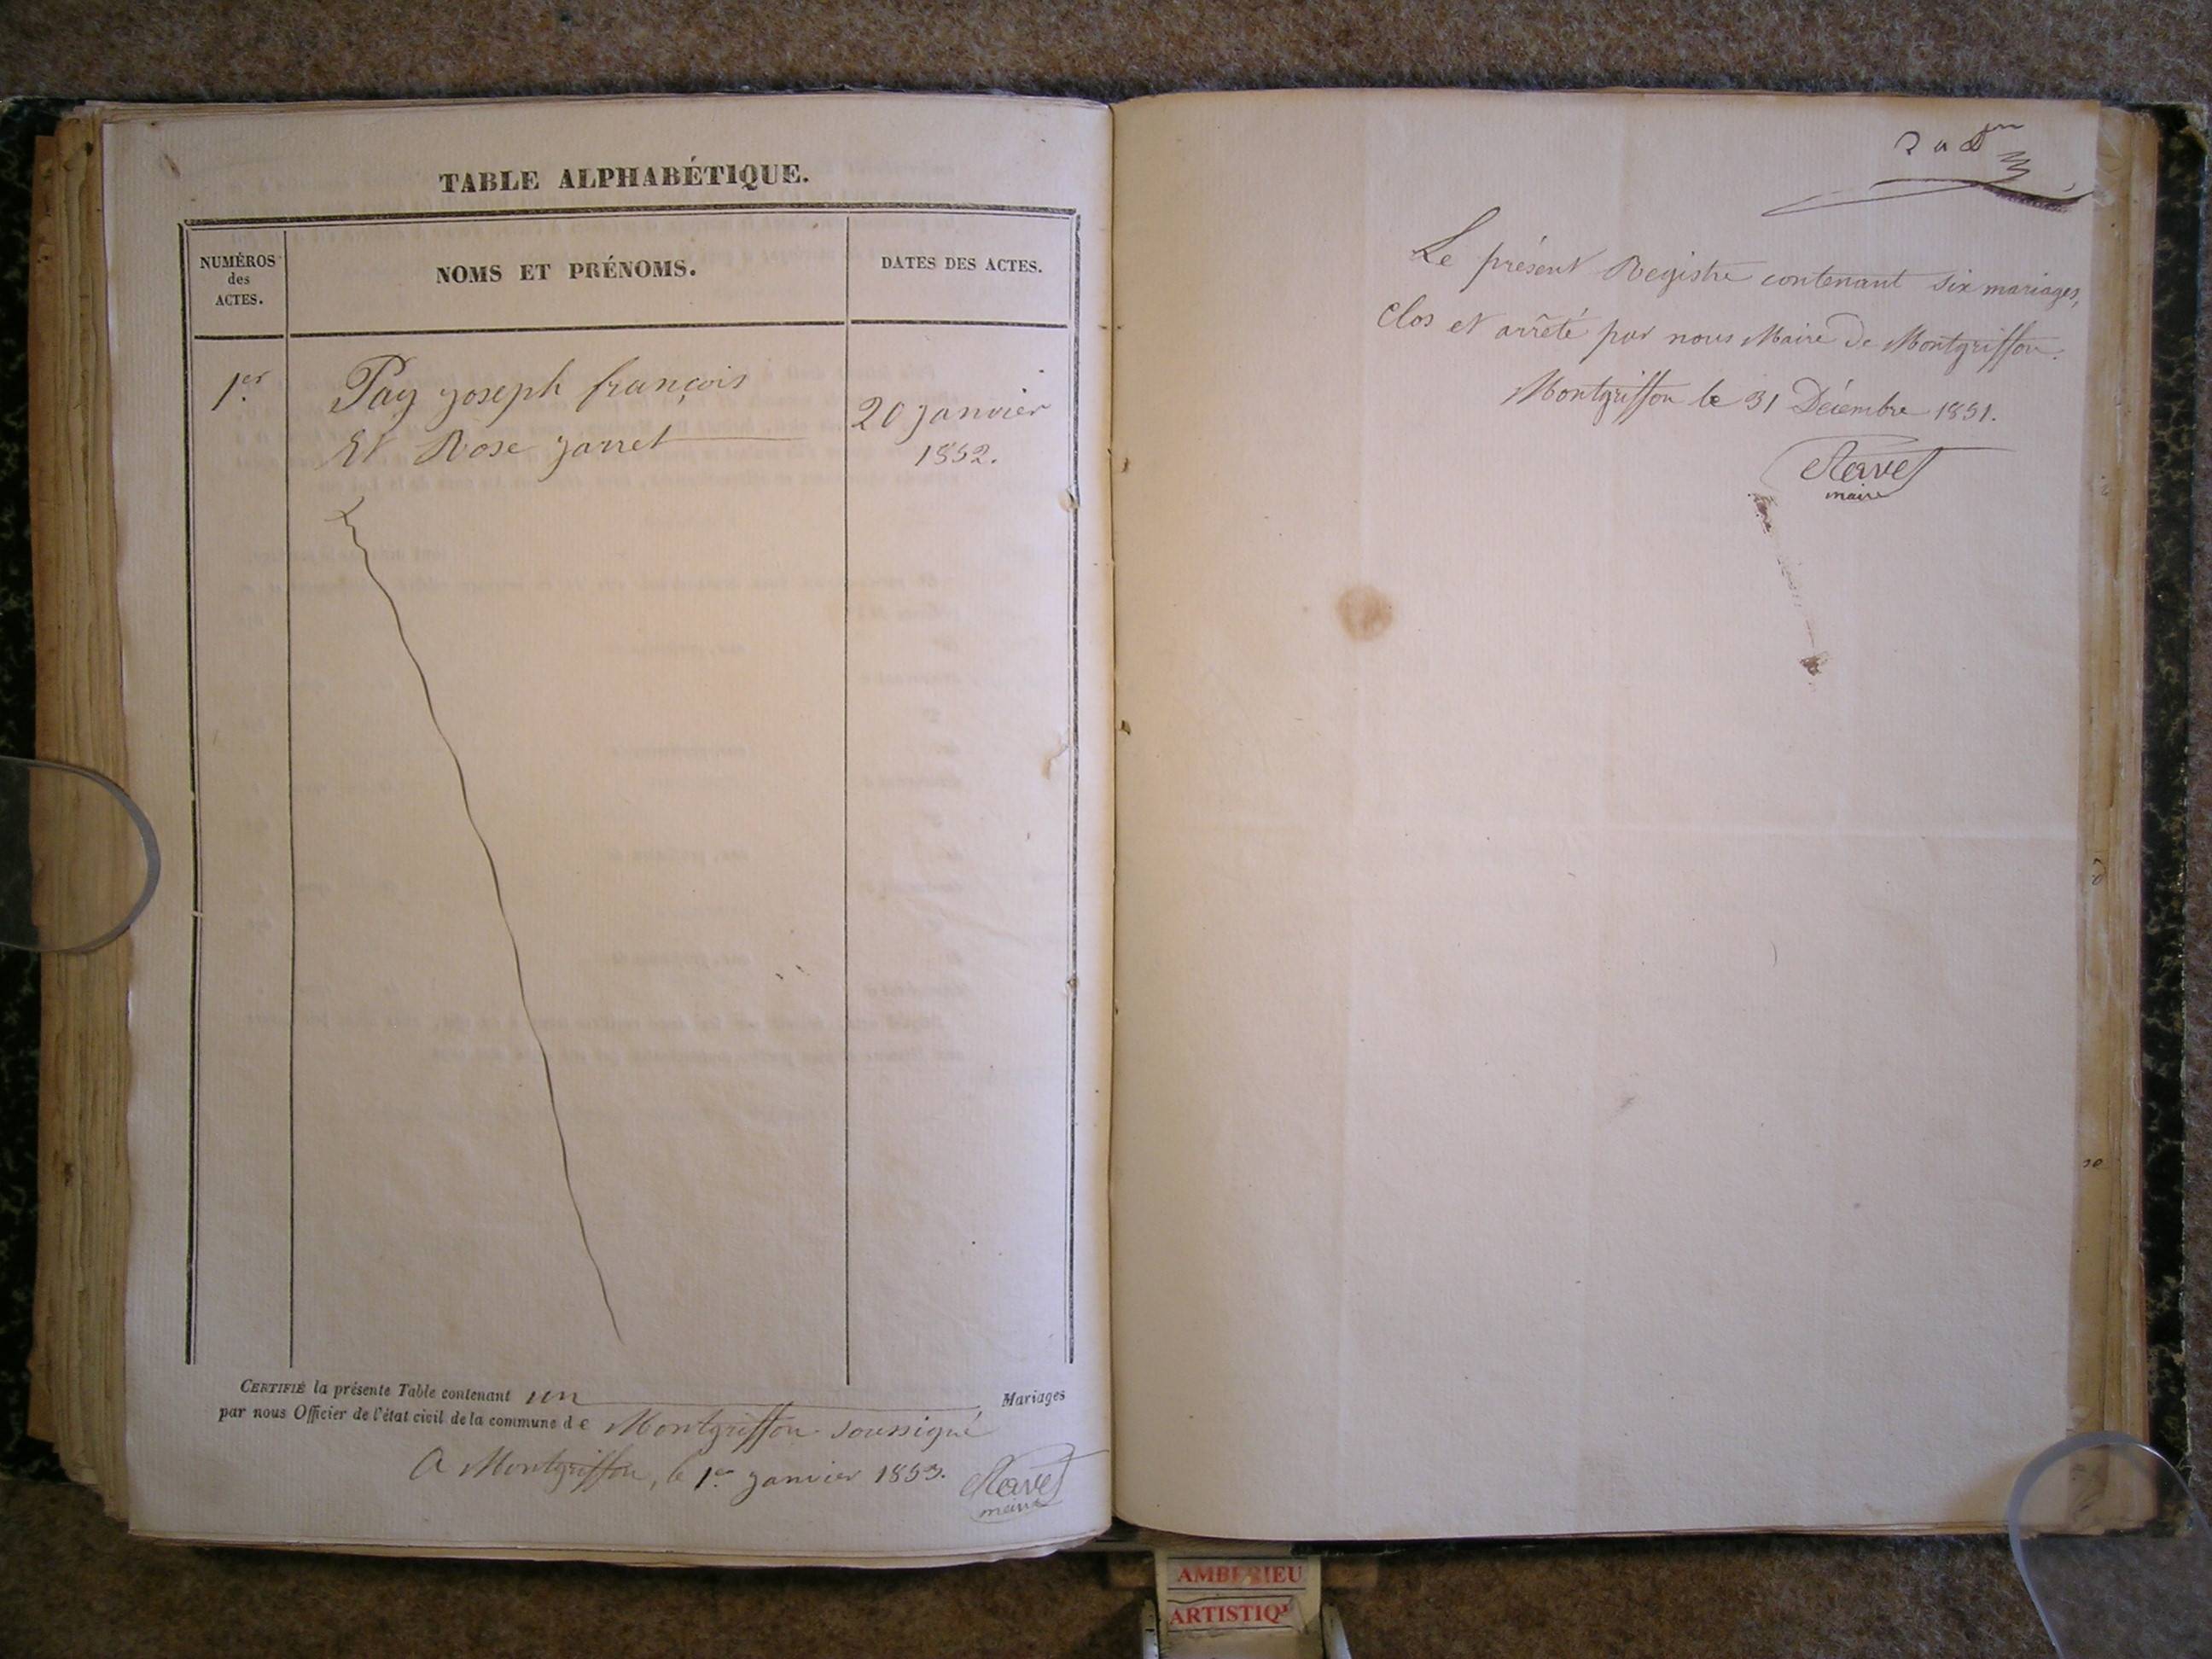 TABLE ALPHABÉTIQUE.
NUMÉROS
des
ACTES.
NOMS ET PRÉNOMS.
DATES DES ACTES.
1er
Pay joseph françois
Et Rose jarret
20 janvier
1852.
CERTIFIÉ la présente Table contenant un Mariages
par nous Officier de l'état civil de la commune de Montgriffon soussigné
A Montgriffon, le 1er janvier 1853.
maire
Le présent Registre contenant six mariages,
clos et arrêté par nous Maire de Montgriffon.
Montgriffon le 31 Décembre 1851.
maire
AMBERIEU
ARTISTIQ